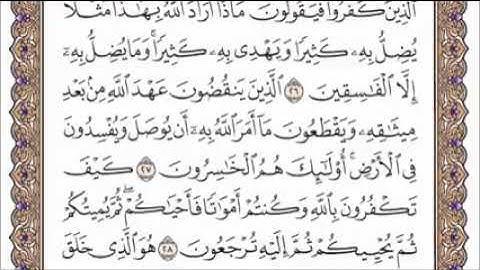 الَّذِينَ كَفَرُوا فَيَقُولُونَ مَاذَا أَرَادَ اللَّهُ بِهَٰذَا مَثَلًا
يُضِلُّ بِهِ كَثِيرًا وَيَهْدِي بِهِ كَثِيرًا ۚ وَمَا يُضِلُّ بِهِ
إِلَّا الْفَاسِقِينَ ٢٦ الَّذِينَ يَنقُضُونَ عَهْدَ اللَّهِ مِنۢ بَعْدِ
مِيثَاقِهِ وَيَقْطَعُونَ مَا أَمَرَ اللَّهُ بِهِ أَن يُوصَلَ وَيُفْسِدُونَ
فِي الْأَرْضِ ۚ أُولَٰئِكَ هُمُ الْخَاسِرُونَ ٢٧ كَيْفَ
تَكْفُرُونَ بِاللَّهِ وَكُنتُمْ أَمْوَاتًا فَأَحْيَاكُمْ ۖ ثُمَّ يُمِيتُكُمْ
ثُمَّ يُحْيِيكُمْ ثُمَّ إِلَيْهِ تُرْجَعُونَ ٢٨ هُوَ الَّذِي خَلَقَ